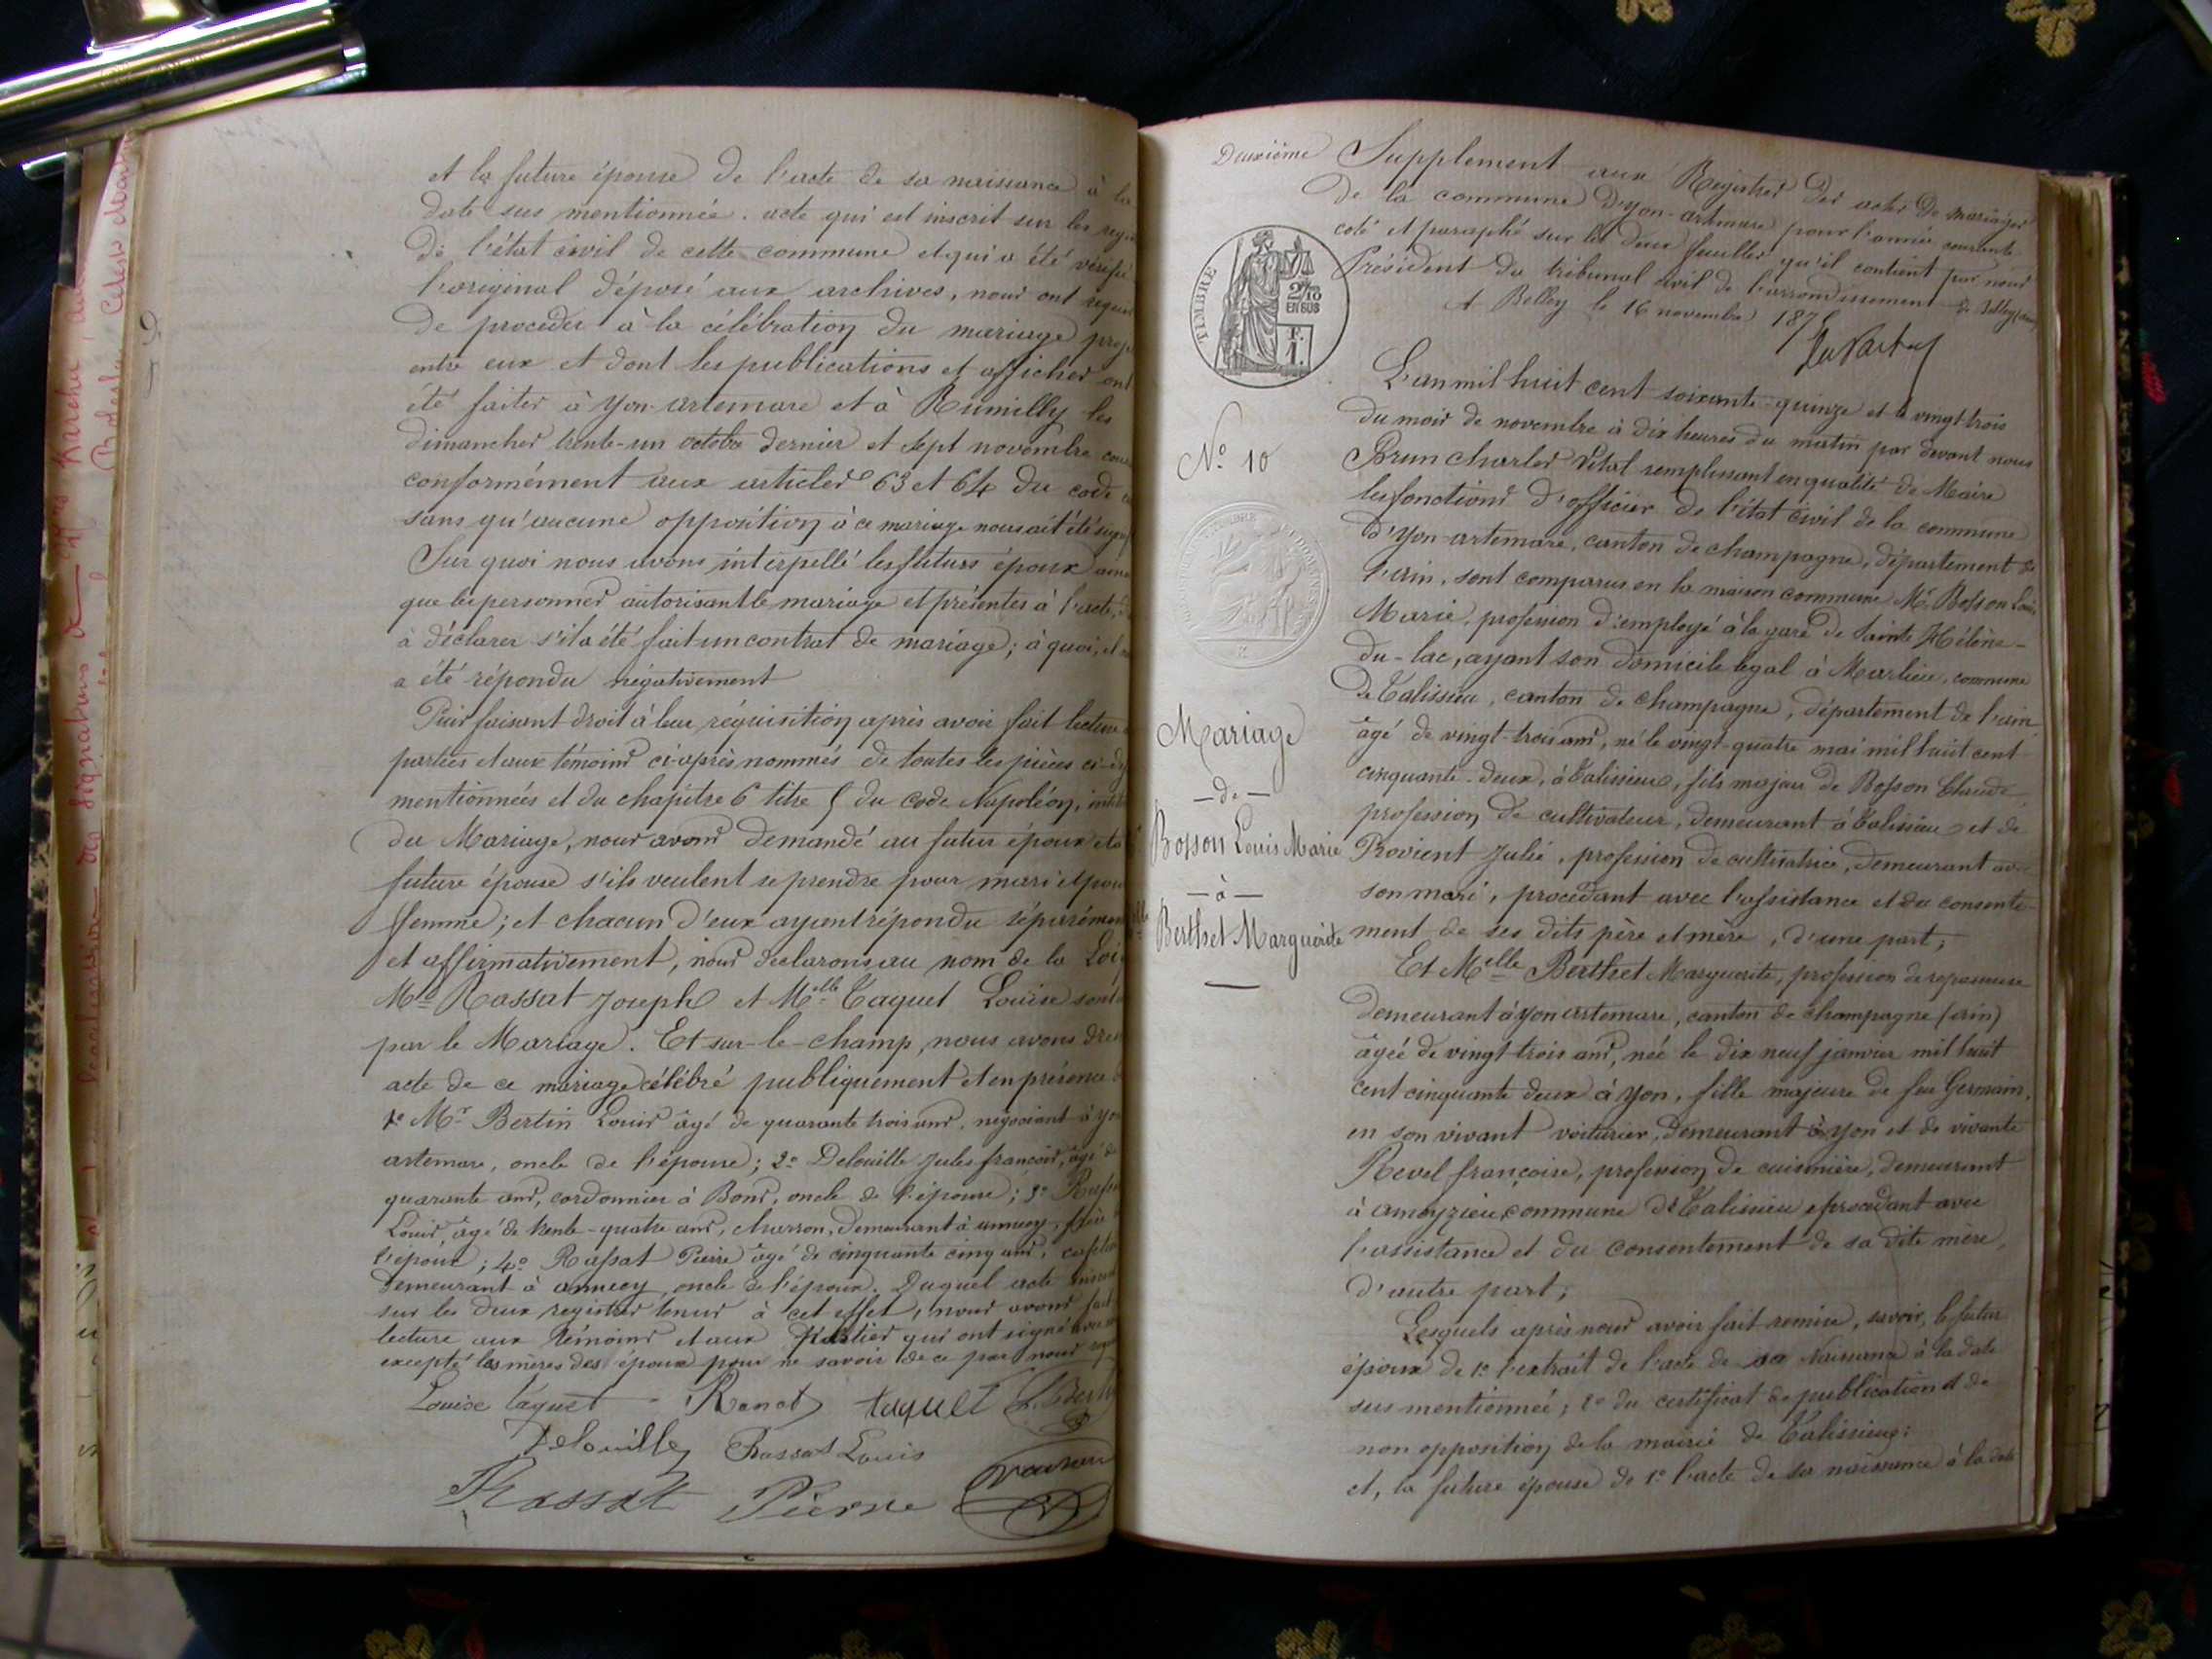 et la future épouse de l'acte de sa naissance à la
date sus mentionnée. acte qui est inscrit sur les
de l'état civil de cette commune et qui a été vérifié
l'original déposé aux archives, nous ont requis
de procéder à la célébration du mariage
entre eux et dont les publications et affiches ont
été faites à Yon-artemare et à Rumilly les
dimanches trente-un octobre dernier et sept novembre
conformément aux articles 63 et 64 du code
sans qu'aucune opposition à ce mariage nous ait été
Sur quoi nous avons interpellé les futurs époux
que les personnes autorisant le mariage et présentes à l'acte,
à déclarer s'il a été fait un contrat de mariage; à quoi, il
a été répondu négativement
Puis faisant droit à leur réquisition après avoir fait lecture
parties et aux témoins ci-après nommés de toutes les pièces ci-
mentionnées et du chapitre 6 titre 5 du code Napoléon,
du Mariage, nous avons demandé au futur époux et à
future épouse s'ils veulent se prendre pour mari et pour
femme; et chacun d'eux ayant répondu séparément
et affirmativement, nous déclarons au nom de la Loi
Mr Rassat Joseph et Melle Taquet Louise sont
par le Mariage. Et sur-le-champ, nous avons
acte de ce mariage célébré publiquement et en présence
1º Mr Bertin Louis âgé de quarante trois ans, négociant à Yon
artemare, oncle de l'épouse; 2º Delouille Jules françois, âgé de
quarante ans, cordonnier à Bons, oncle de l'épouse; 3º
Louis, âgé de trente-quatre ans, charron, demeurant à annecy, frère
l'époux; 4º Rassat Pierre âgé de cinquante cinq ans,
demeurant à annecy, oncle de l'époux. Duquel acte
sur les deux registres tenus à cet effet, nous avons fait
lecture aux témoins et aux parties qui ont signé avec
excepté les mères des époux pour ne savoir de ce par nous
Louise taquet - taquet
Delouille Rassat Louis
Rassat Pierre
Deuxième Supplement aux Registres des actes de mariages
de la commune d'Yon-artemare pour l'année courante
coté et paraphé sur les deux feuilles qu'il contient par nous
Président du tribunal civil de l'arrondissement de Belley
A Belley le 16 novembre 1875
TIMBRE
2/10
EN SUS
F.
1.
L'an mil huit cent soixante-quinze et le vingt-trois
du mois de novembre à dix heures du matin par devant nous
Brun charles Vital remplissant en qualité de Maire
les fonctions d'officier de l'état civil de la commune
d'Yon-artemare, canton de champagne, département de
l'ain, sont comparus en la maison commune Mr Bosson Louis
Marie, profession d'employé à la gare de Sainte Hélène-
du-lac, ayant son domicile légal à Marlieu, commune
de Talissieu, canton de champagne, département de l'ain
âgé de vingt-trois ans, né le vingt-quatre mai mil huit cent
cinquante-deux, à Talissieu, fils majeur de Bosson Claude,
profession de cultivateur, demeurant à Talissieu et de
Provient Julie, profession de cultivatrice, demeurant avec
son mari, procédant avec l'assistance et du consente-
ment de ses dits père et mère, d'une part;
Et Melle Berthet Marguerite, profession de repasseuse
demeurant à yon artemare, canton de champagne (ain)
âgée de vingt-trois ans, née le dix neuf janvier mil huit
cent cinquante deux à yon, fille majeure de feu Germain,
en son vivant voiturier, demeurant à yon et de vivante
Revel françoise, profession de cuisinière, demeurant
à amayzieu, commune de Talissieu procédant avec
l'assistance et du consentement de sa dite mère,
d'autre part;
Lesquels après nous avoir fait remise, savoir, le futur
époux de 1º l'extrait de l'acte de sa naissance à la date
sus mentionnée; 2º du certificat de publication et de
non opposition de la mairie de Talissieu;
et, la future épouse de 1º l'acte de sa naissance à la date
Nº 10
Mariage
- de -
Bosson Louis Marie
- à -
Berthet Marguerite